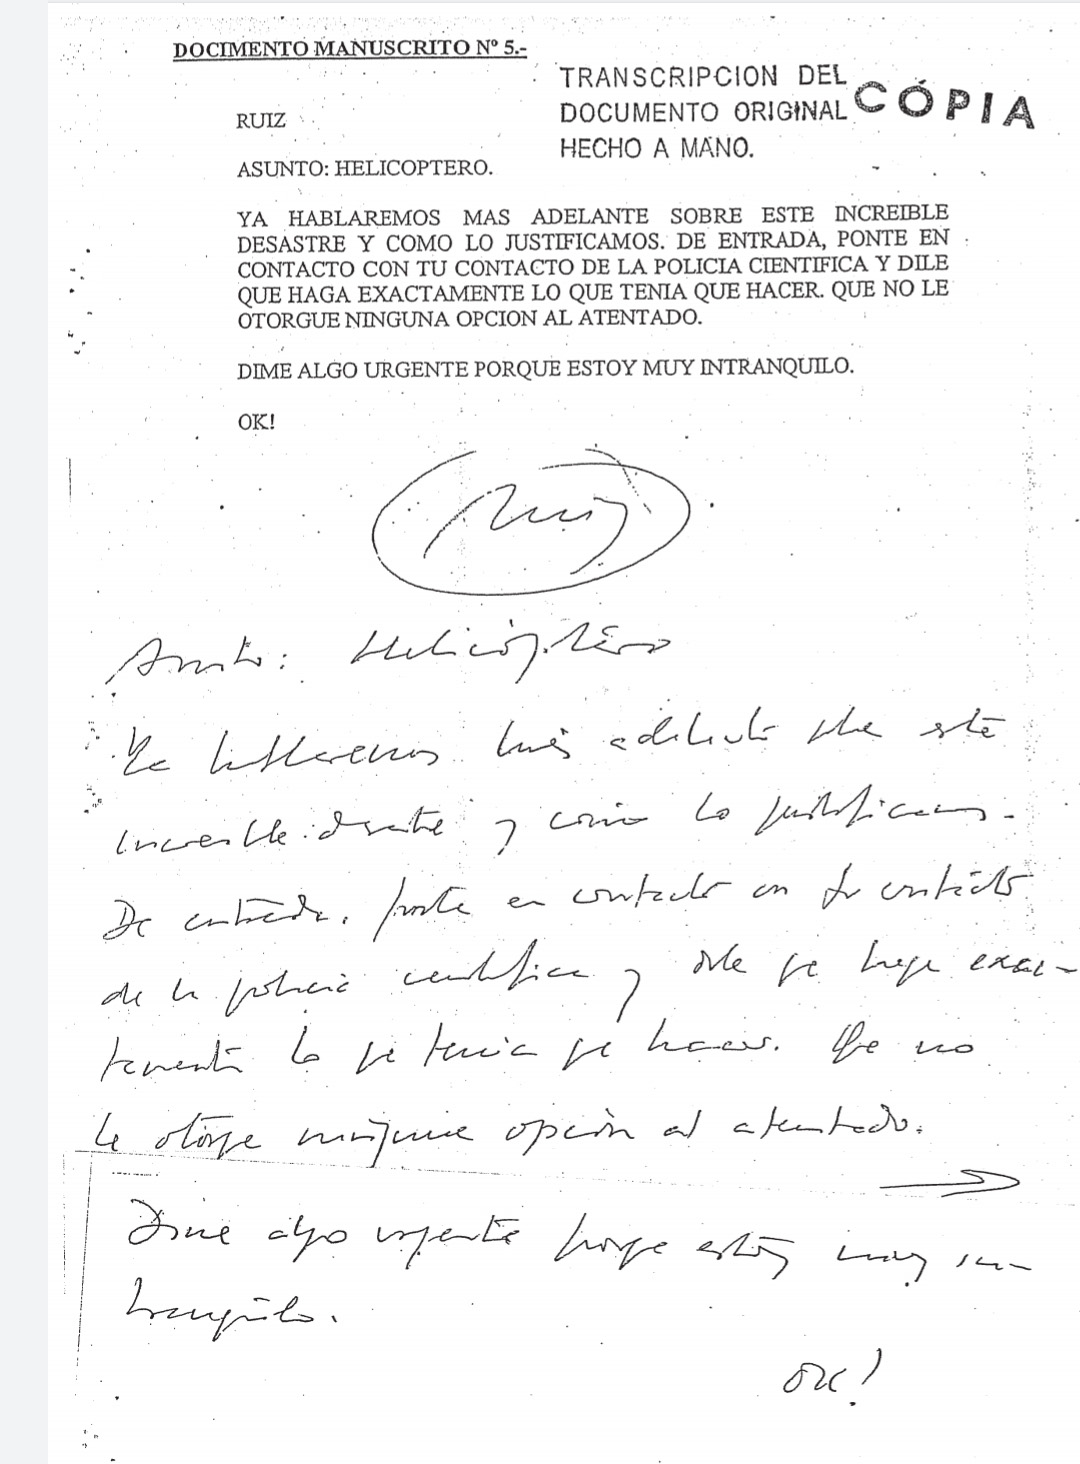 DOCIMENTO MANUSCRITO Nº 5.-
TRANSCRIPCION DEL
DOCUMENTO ORIGINAL
HECHO A MANO.
CÓPIA
RUIZ
ASUNTO: HELICOPTERO.
YA HABLAREMOS MAS ADELANTE SOBRE ESTE INCREIBLE
DESASTRE Y COMO LO JUSTIFICAMOS. DE ENTRADA, PONTE EN
CONTACTO CON TU CONTACTO DE LA POLICIA CIENTIFICA Y DILE
QUE HAGA EXACTAMENTE LO QUE TENIA QUE HACER. QUE NO LE
OTORGUE NINGUNA OPCION AL ATENTADO.
DIME ALGO URGENTE PORQUE ESTOY MUY INTRANQUILO.
OK!
Ruiz
Asunto: Helicóptero
Ya hablaremos más adelante sobre este
increible desastre y cómo lo justificamos.
De entrada, ponte en contacto con tu contacto
de la policia cientifica y dile que haga exac-
tamente lo que tenia que hacer. Que no
le otorgue ninguna opción al atentado.
Dime algo urgente porque estoy muy in-
tranquilo.
OK!